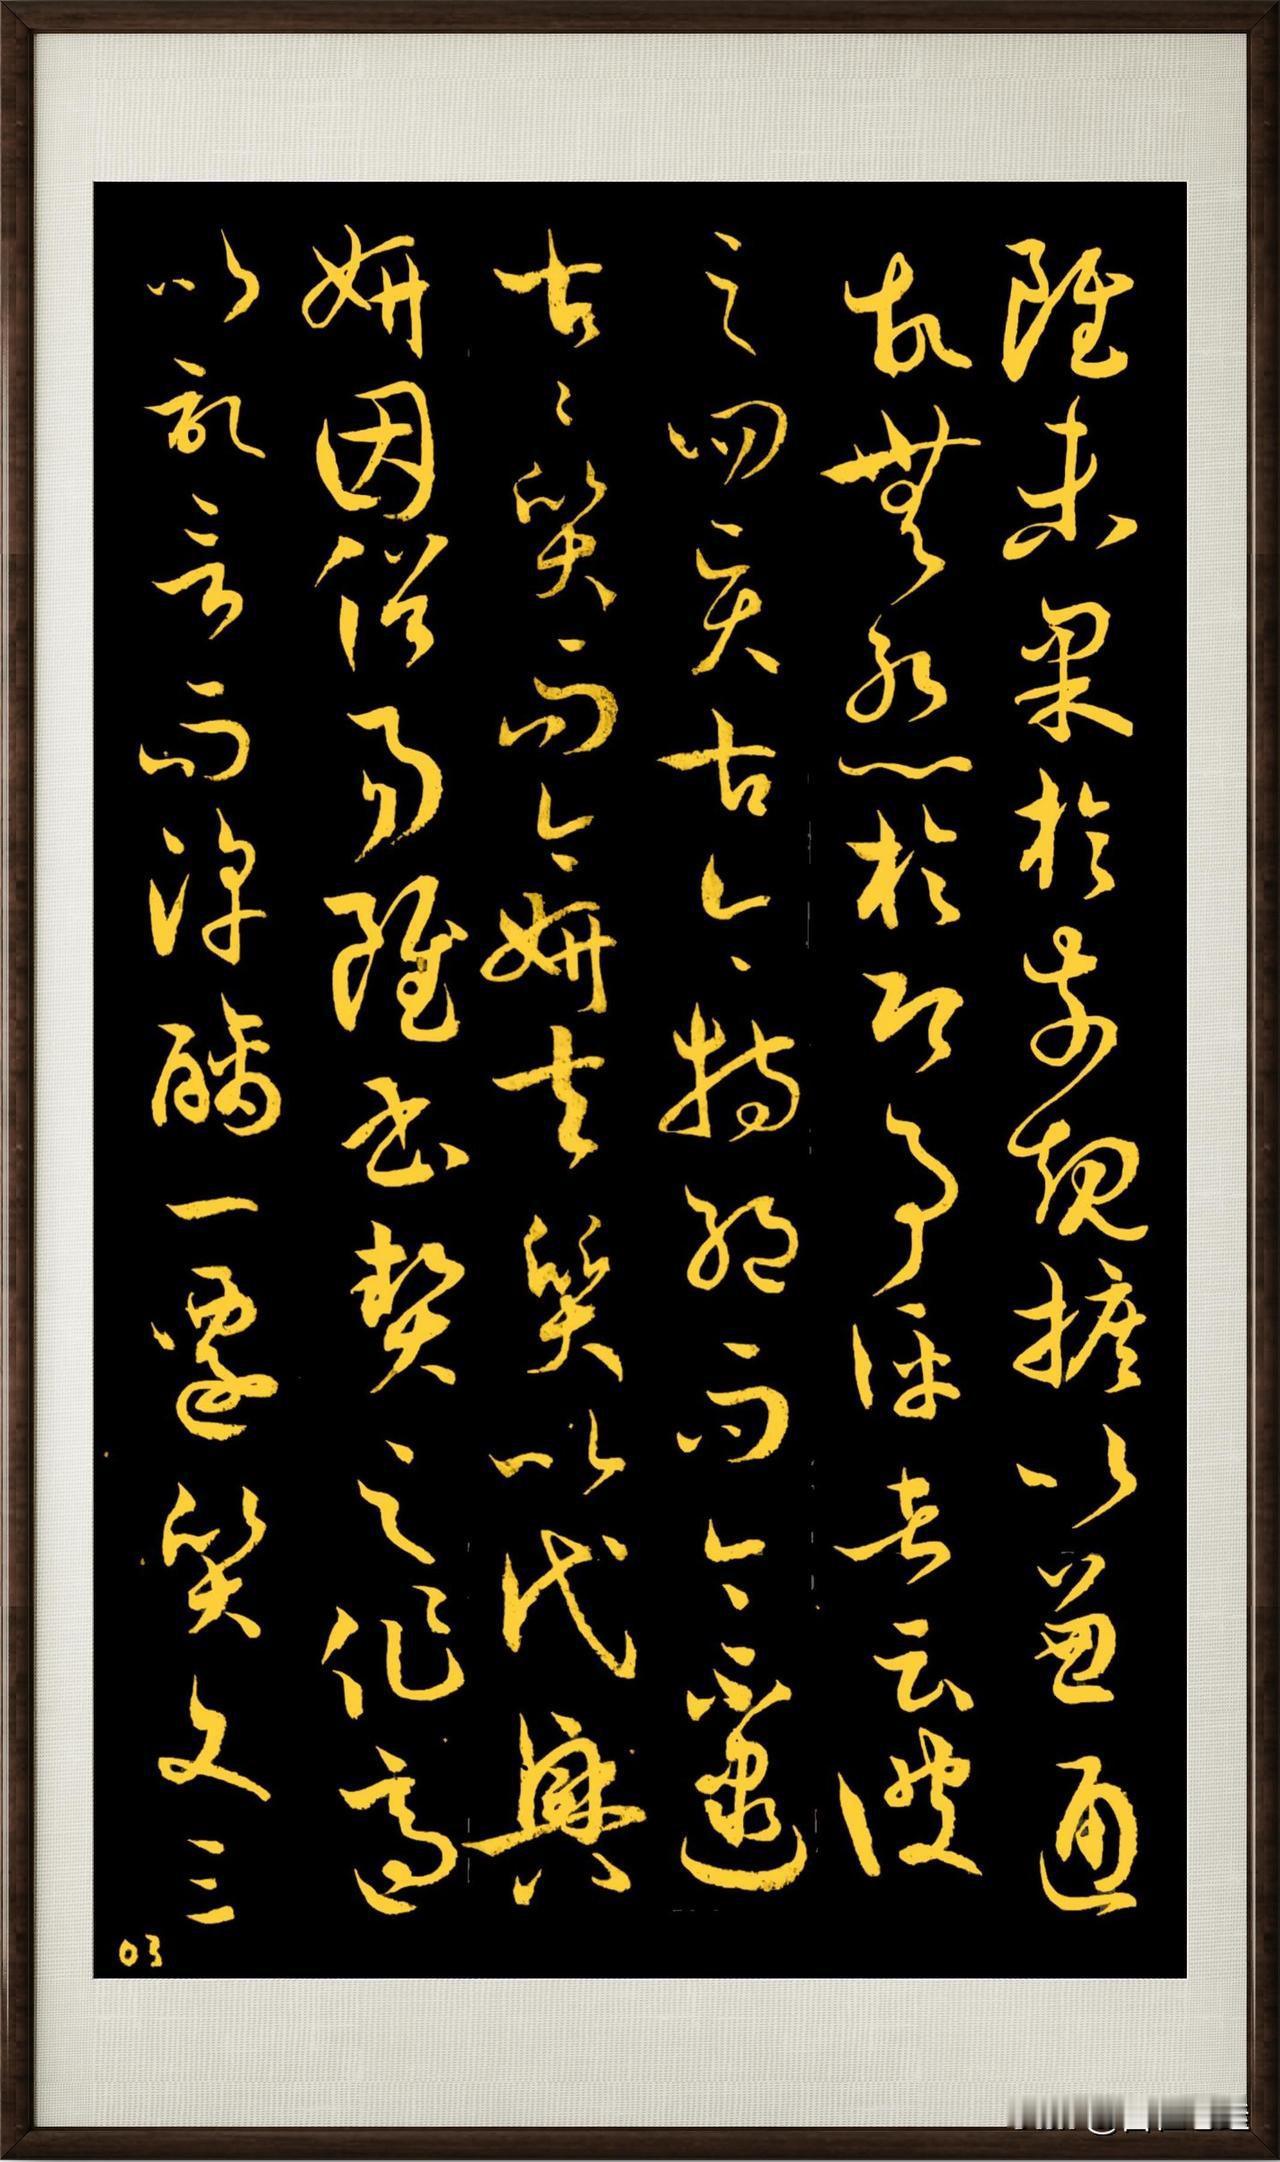 雖未果於前規摭以兼通
故無慙於即事評者云彼
之四賢古今特絕而今不逮
古々質而今妍夫質以代興
妍因俗易雖書契之作適
以記言而淳醨一遷質文三
03